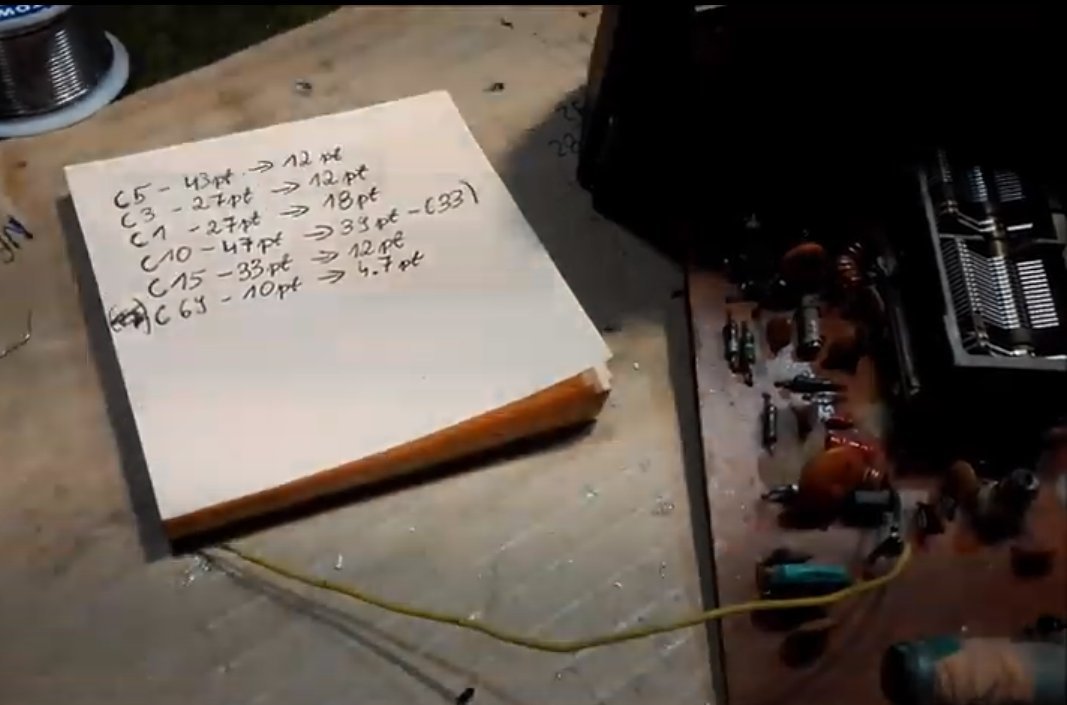 C5 - 43pf → 12 pf
C3 - 27pf → 12pf
C1 - 27pf → 18pf
C10 - 47pf → 39pf - (33)
C15 - 33pf → 12pf
C69 - 10pf → 4.7pf